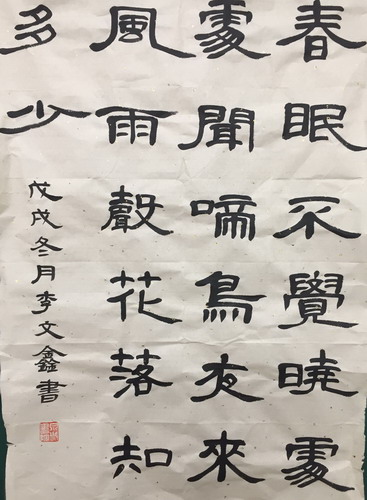 春眠不覺曉處
處聞啼鳥夜來
風雨聲花落知
多少
戊戌冬月李文鑫書